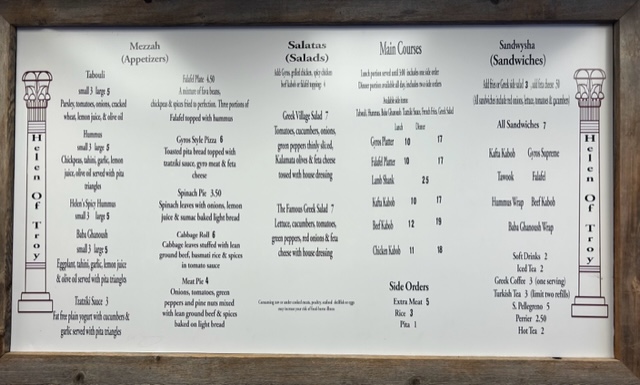 Helen Of Troy
Mezzah
(Appetizers)
Tabouli
small 3 large 5
Parsley, tomatoes, onions, cracked
wheat, lemon juice, & olive oil
Hummus
small 3 large 5
Chickpeas, tahini, garlic, lemon
juice, olive oil served with pita
triangles
Helen's Spicy Hummus
small 3 large 5
Baba Ghanoush
small 3 large 5
Eggplant, tahini, garlic, lemon juice
& olive oil served with pita triangles
Tzatziki Sauce 3
Fat free plain yogurt with cucumbers &
garlic served with pita triangles
Falafel Plate 4.50
A mixture of fava beans,
chickpeas & spices fried to perfection. Three portions of
Falafel topped with hummus
Gyros Style Pizza 6
Toasted pita bread topped with
tzatziki sauce, gyro meat & feta
cheese
Spinach Pie 3.50
Spinach leaves with onions, lemon
juice & sumac baked light bread
Cabbage Roll 6
Cabbage leaves stuffed with lean
ground beef, basmati rice & spices
in tomato sauce
Meat Pie 4
Onions, tomatoes, green
peppers and pine nuts mixed
with lean ground beef & spices
baked on light bread
Salatas
(Salads)
Add: Gyros, grilled chicken, spicy chicken
beef kabob or falafel topping 4
Greek Village Salad 7
Tomatoes, cucumbers, onions,
green peppers thinly sliced,
Kalamata olives & feta cheese
tossed with house dressing
The Famous Greek Salad 7
Lettuce, cucumbers, tomatoes,
green peppers, red onions & feta
cheese with house dressing
Main Courses
Lunch portion served until 3:00 includes one side order
Dinner portion available all day, includes two side orders
Available side items
Tabouli, Hummus, Baba Ghanoush, Tzatziki Sauce, French Fries, Greek Salad
Lunch Dinner
Gyros Platter 10 17
Falafel Platter 10 17
Lamb Shank 25
Kafta Kabob 10 17
Beef Kabob 12 19
Chicken Kabob 11 18
Side Orders
Extra Meat 5
Rice 3
Pita 1
Sandwysha
(Sandwiches)
Add fries or Greek side salad 3 add feta cheese .50
(All sandwiches include red onions, lettuce, tomatoes & cucumbers)
All Sandwiches 7
Kafta Kabob Gyros Supreme
Tawook Falafel
Hummus Wrap Beef Kabob
Baba Ghanoush Wrap
Soft Drinks 2
Iced Tea 2
Greek Coffee 3 (one serving)
Turkish Tea 3 (limit two refills)
S. Pellegreno 5
Perrier 2.50
Hot Tea 2
Helen Of Troy